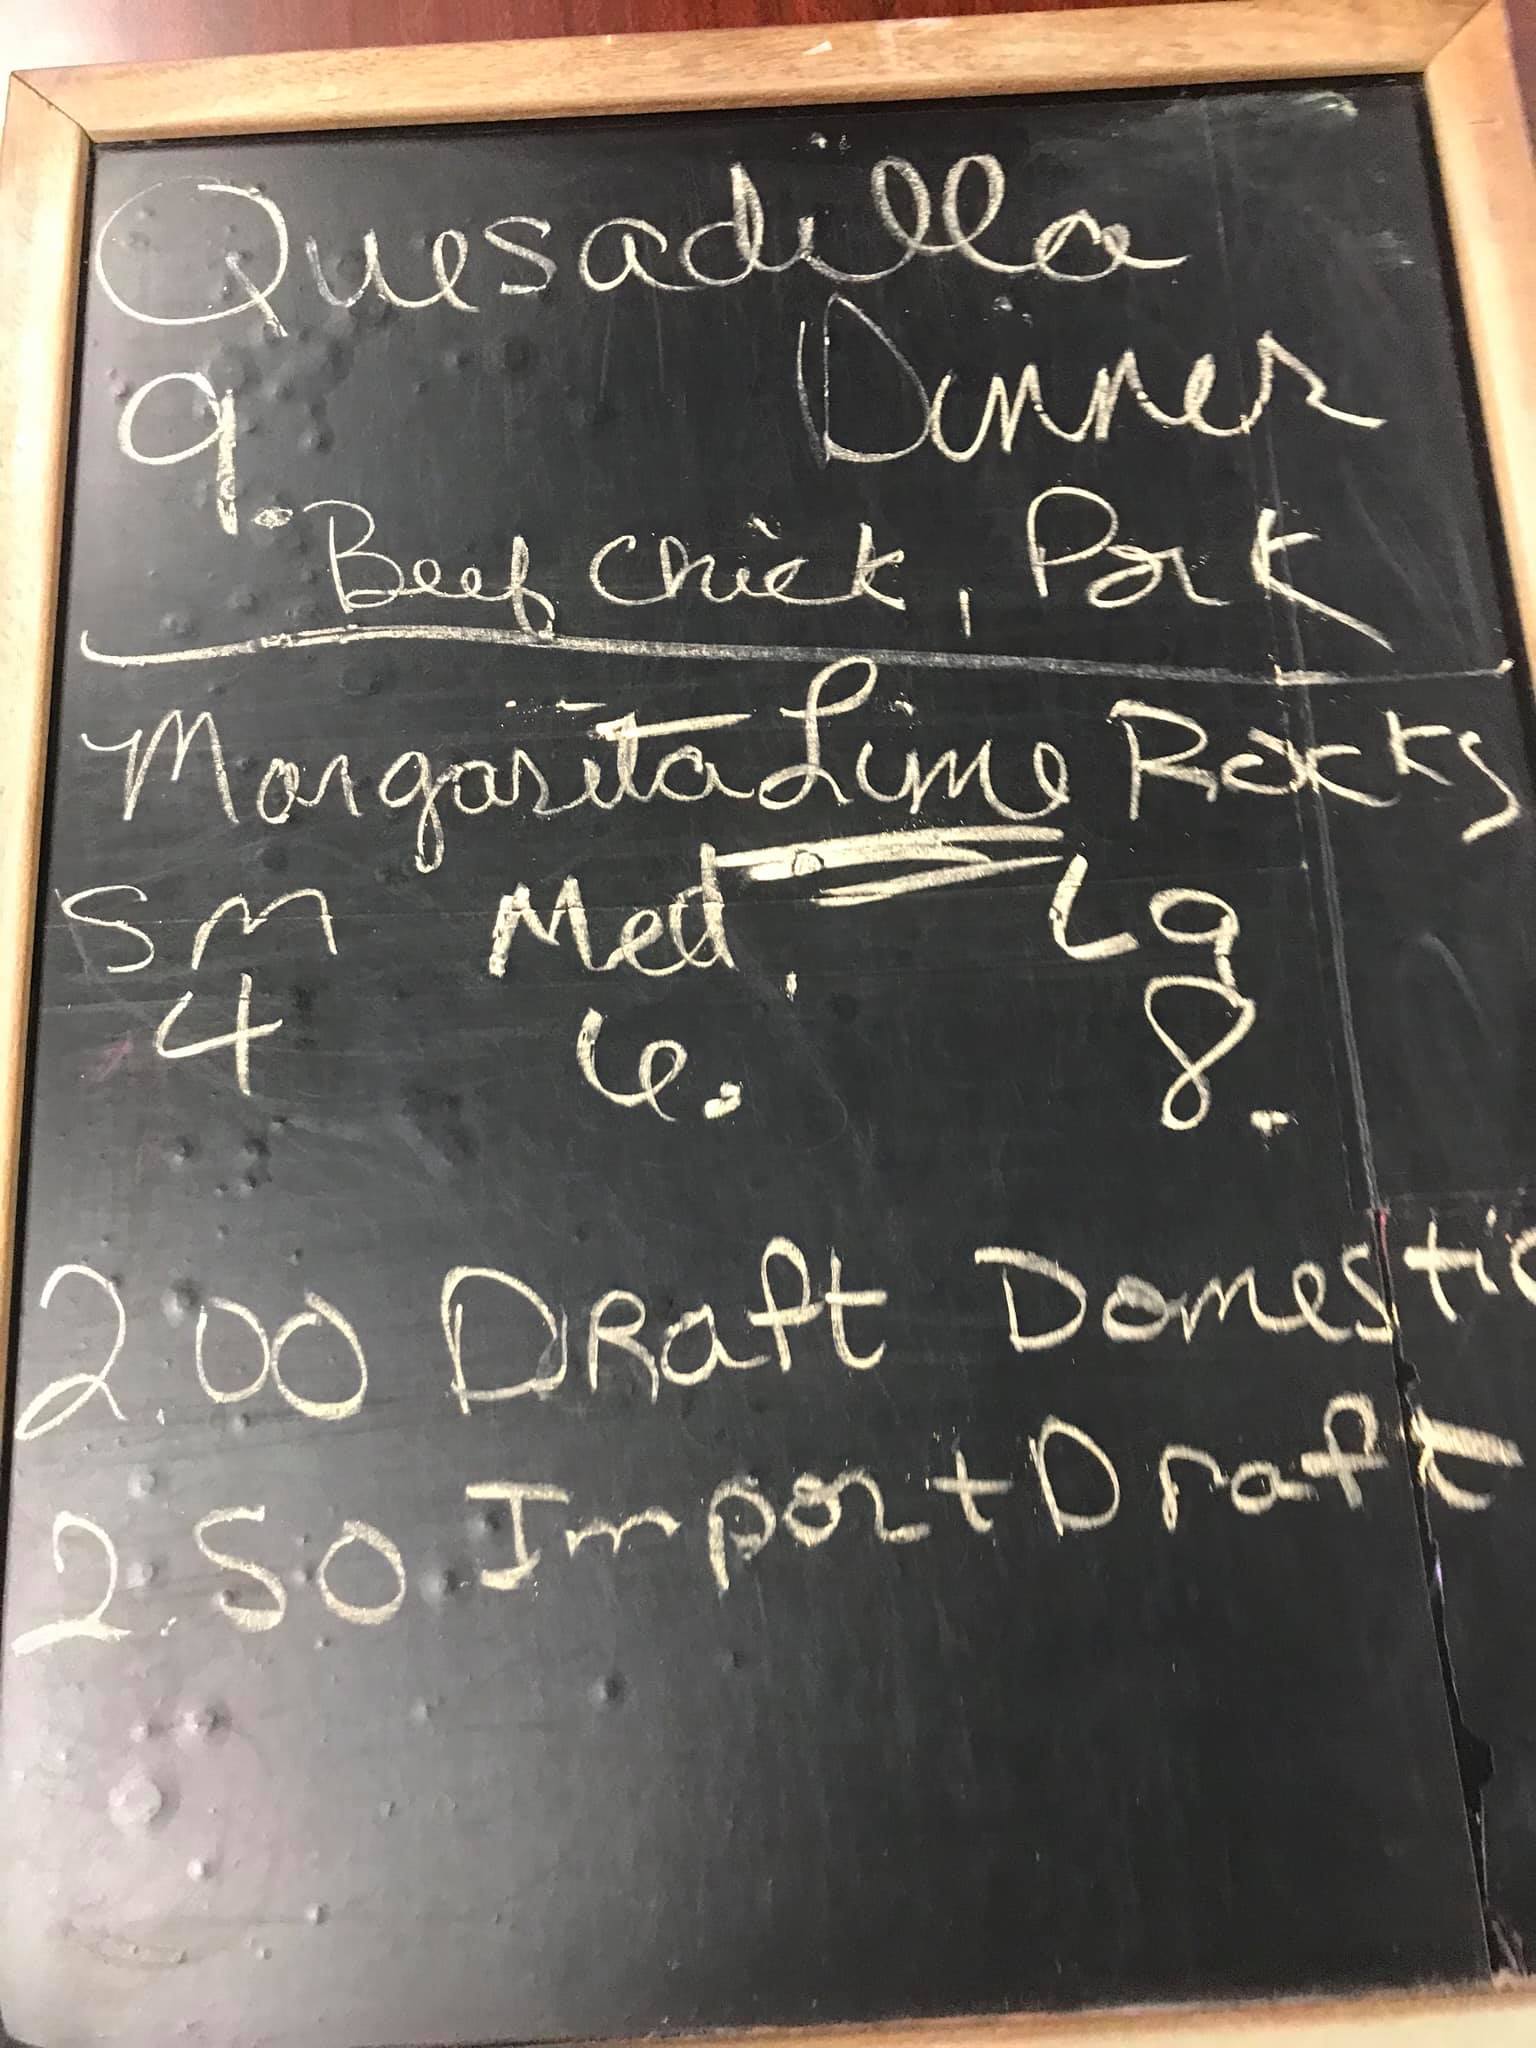 Quesadilla
9. Dinner
Beef Chick, Pork
Margarita Lime Rocks
Sm Med. Lg
4 6. 8.
2.00 DRaft Domestic
2.50 Import Draft